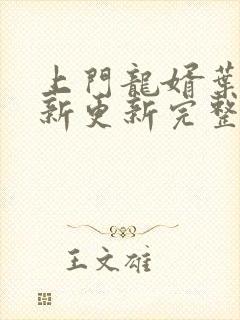 上門龍婿葉
新更新完整
王文雄